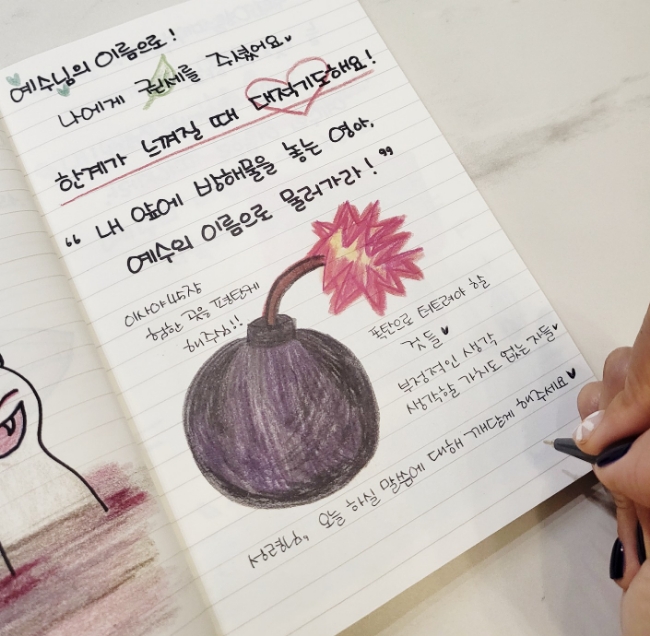 예수님의 이름으로!
나에게 권세를 주셨어요
한계가 느껴질 때 대적기도해요!
“ 내 앞에 방해물을 놓는 영아,
예수의 이름으로 물러가라!”
이사야45장
험한 곳을 평탄케
해주심!!
폭탄으로 터트려야 할
것들
부정적인 생각
생각할 가치도 없는 자들
성령님~ 오늘 하실 말씀에 대해 깨닫게 해주세요